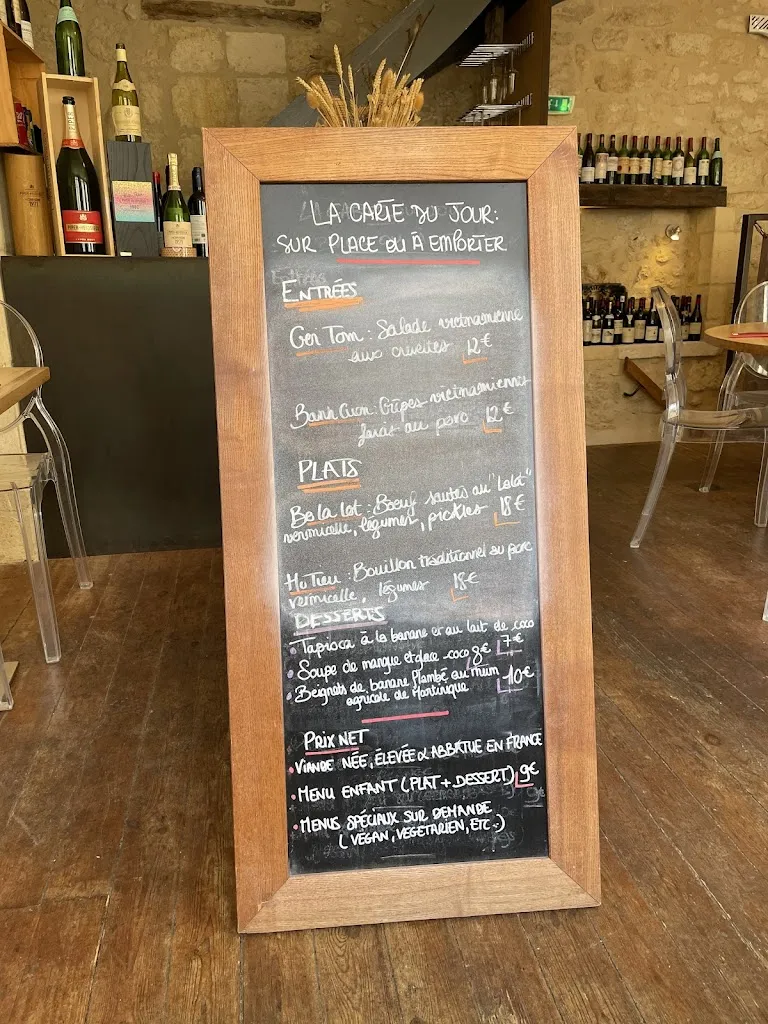 LA CARTE DU JOUR:
SUR PLACE OU À EMPORTER
ENTRÉES
Gen Tom : Salade vietnamienne
aux crevettes 12€
Banh Cuon : Crêpes vietnamiennes
farcis au porc 12€
PLATS
Bo la lot : Boeuf sautés au "Lolot"
vermicelle, légumes, pickles 18€
Hu Tieu : Bouillon traditionnel au porc
vermicelle, légumes 18€
DESSERTS
• Tapioca à la banane et au lait de coco 7€
• Soupe de mangue et glace coco 8€
• Beignets de banane flambé au rhum
agricole de Martinique 10€
PRIX NET
• VIANDE NÉE, ÉLEVÉE & ABBATUE EN FRANCE
• MENU ENFANT (PLAT + DESSERT) 9€
• MENUS SPÉCIAUX SUR DEMANDE
(VEGAN, VEGETARIEN, ETC.)